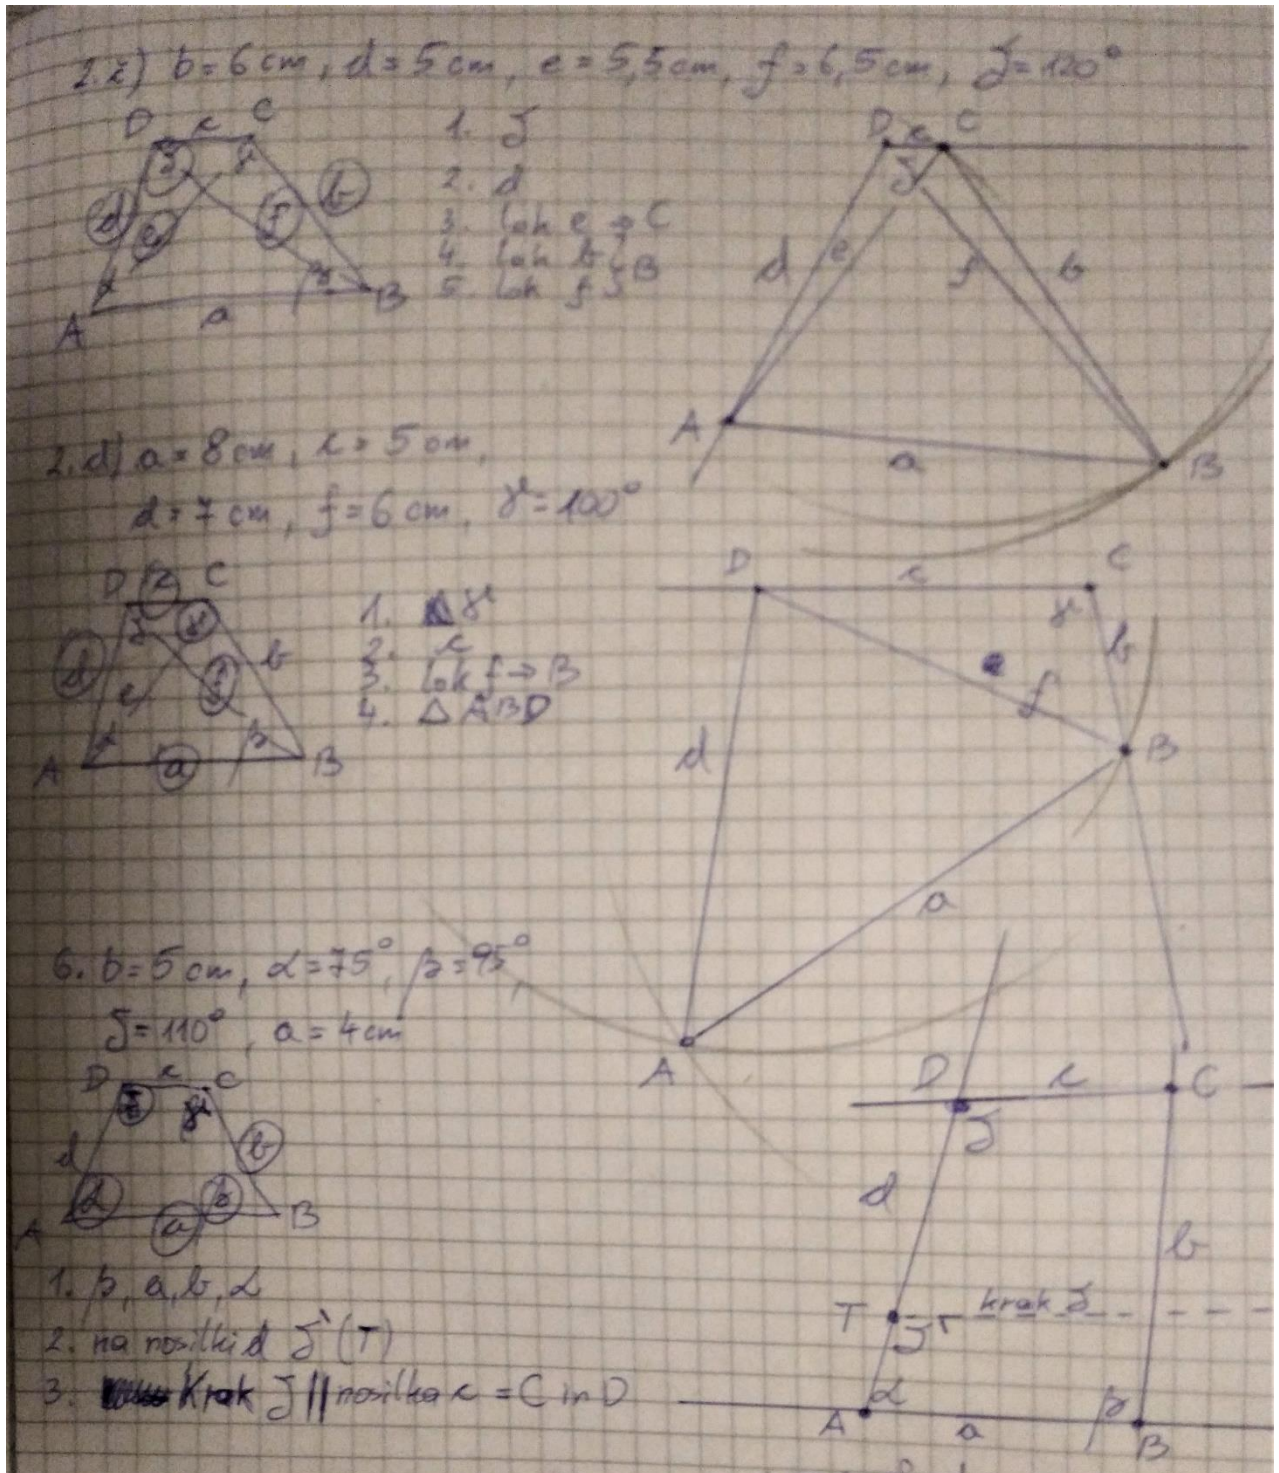 2.č) b=6cm, d=5cm, e=5,5cm, f=6,5cm, δ=120°
D c C
δ γ
d e f b
α β
A a B
1. δ
2. d
3. lok e → C
4. lok b } B
5. lok f
D c C
δ
d e f b
A a B
2.d) a=8cm, c=5cm,
d=7cm, f=6cm, γ=100°
D c C
δ γ
d e f b
α β
A a B
1. γ
2. c
3. lok f → B
4. Δ ABD
D c C
γ
b
f
d B
a
A
6. b=5cm, α=75°, β=95°,
δ=110°, a=4cm
D c C
δ γ
d b
α β
A a B
1. β, a, b, α
2. na nosilki d δ' (T)
3. Krak δ || nosilka c = C in D
D c C
δ
d
b
T krak δ
δ'
α β
A a B